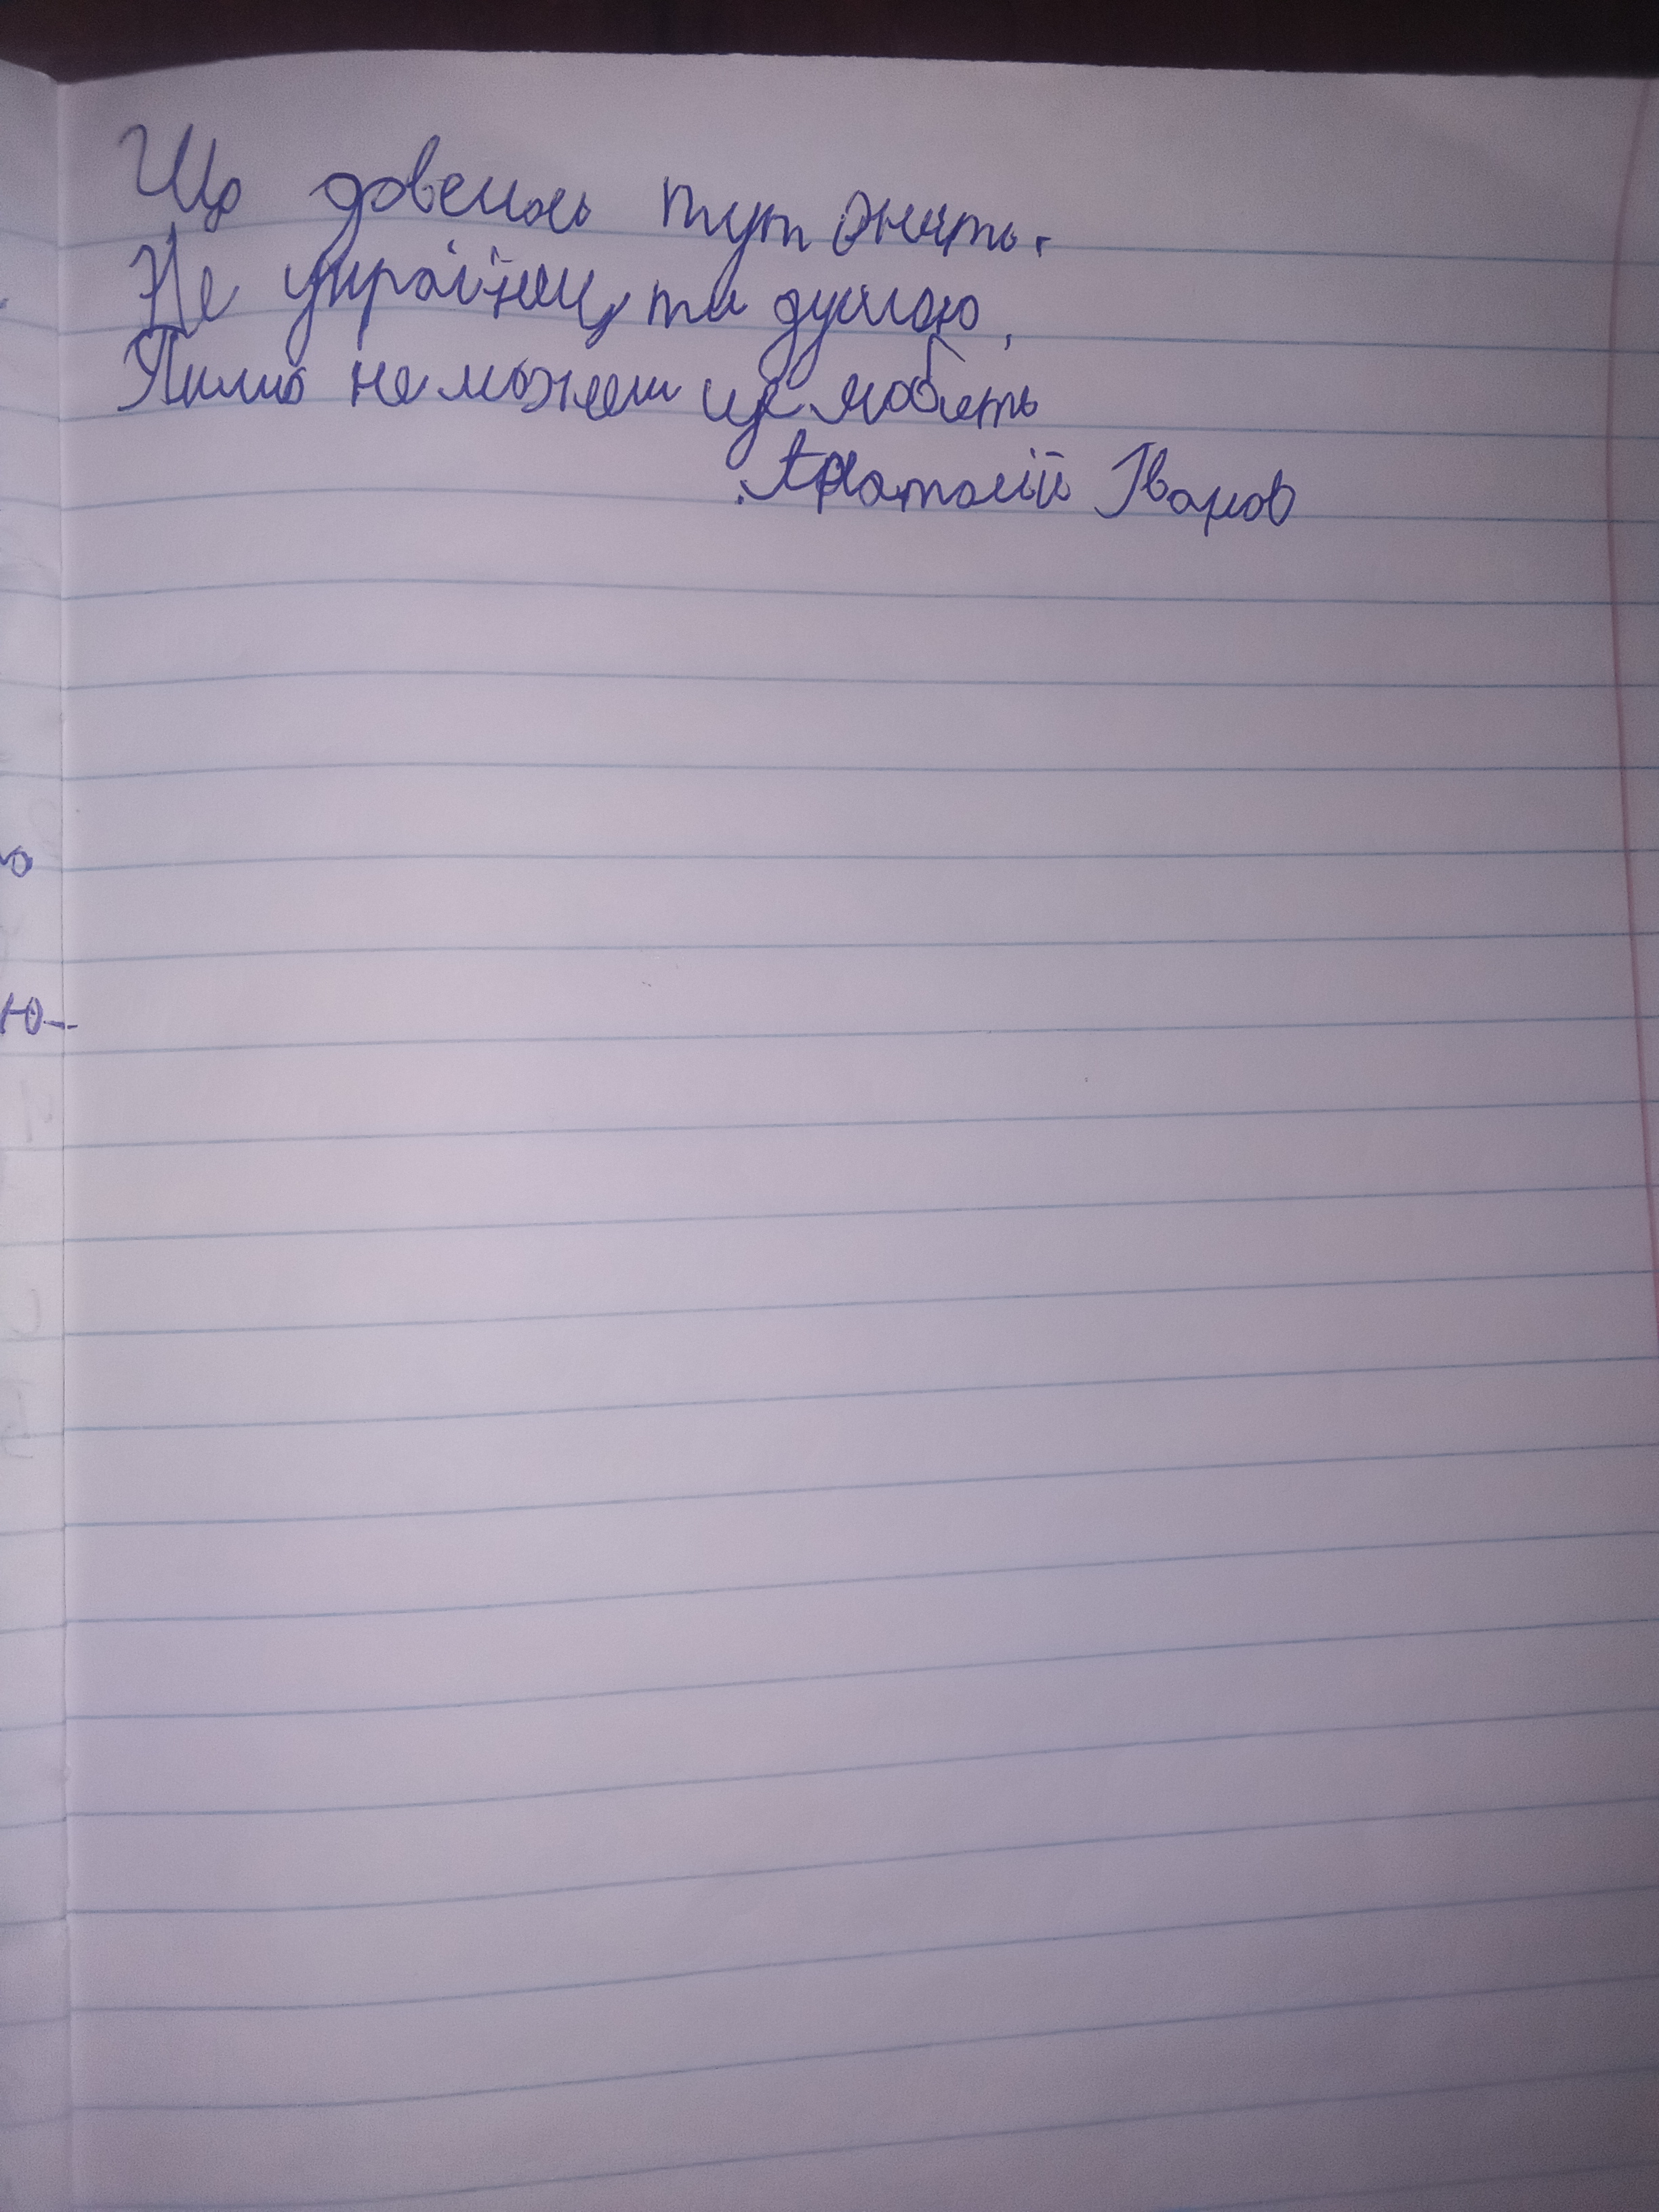 Що довелось тут жить.
Не українец ти душою,
Якшо не можеш це любить
Анатолій Іванов
ю-